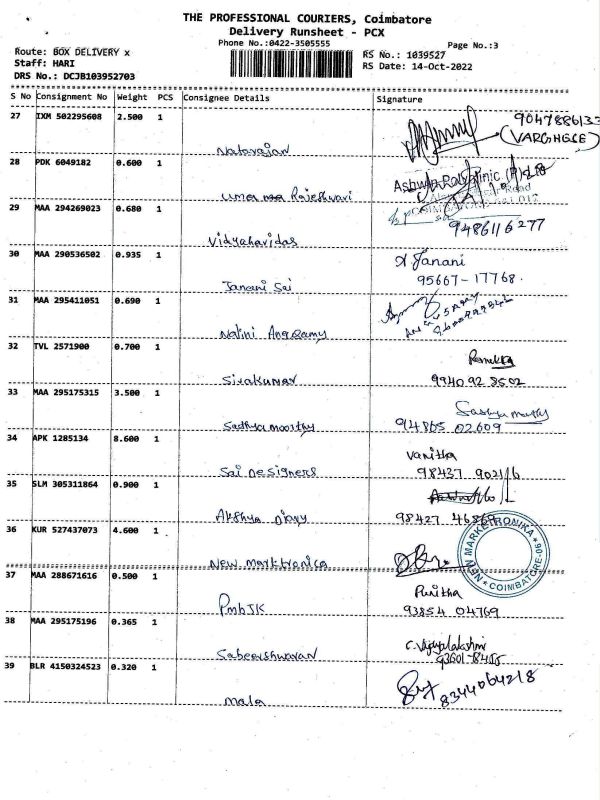 THE PROFESSIONAL COURIERS, Coimbatore
Delivery Runsheet - PCX
Phone No.:0422-3505555
Page No.:3
Route: BOX DELIVERY x
RS No.: 1039527
Staff: HARI
RS Date: 14-Oct-2022
DRS No.: DCJB103952703
S No Consignment No Weight PCS Consignee Details Signature
27 IXM 502295608 2.500 1
9047886133
(VARGHESE)
Natarajan
28 PDK 6049182 0.600 1
Uma Rajeshwari
29 MAA 294269023 0.680 1
9486116277
Vidyaharidas
30 MAA 290536502 0.935 1
Janani
95667-17768.
Janani Sai
31 MAA 295411051 0.690 1
Nalini
32 TVL 2571900 0.700 1
Sivakumar
99409 28502
33 MAA 295175315 3.500 1
Sathya moorthy
94865 02609
34 APK 1285134 8.600 1
Vanitha
Sai Designers
98437 90216
35 SLM 305311864 0.900 1
Akshya
98427
36 KUR 527437073 4.600 1
NEW MARKETRONIKA
COIMBATORE-
New marktronica
37 MAA 288671616 0.500 1
Punitha
PmbJK
93854 04769
38 MAA 295175196 0.365 1
C. Vijayalakshmi
Sabeershwaran
39 BLR 4150324523 0.320 1
8344064218
Mala